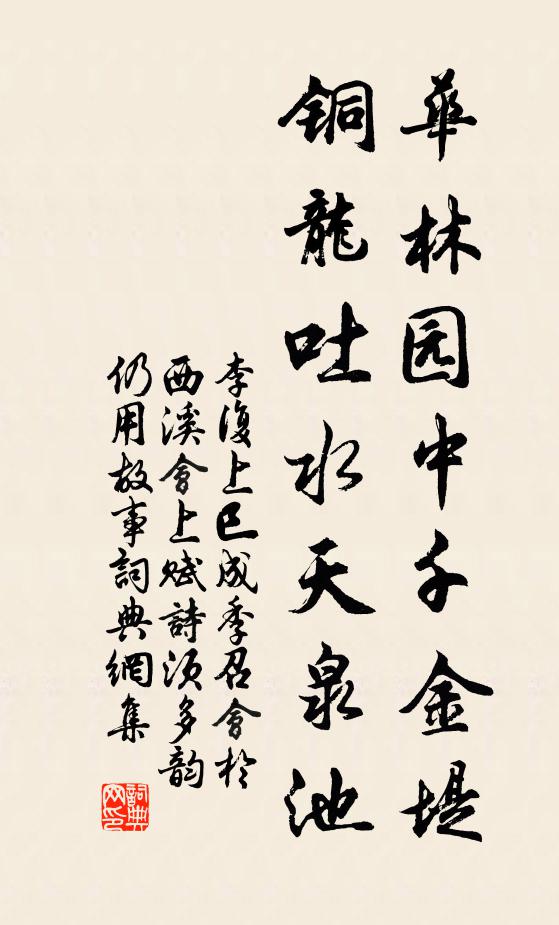 華林园中千金堤
铜龍吐水天泉池
李復上巳成季召會於
西溪會上赋詩须多韵
仍用故事詞典網集
詞典网印